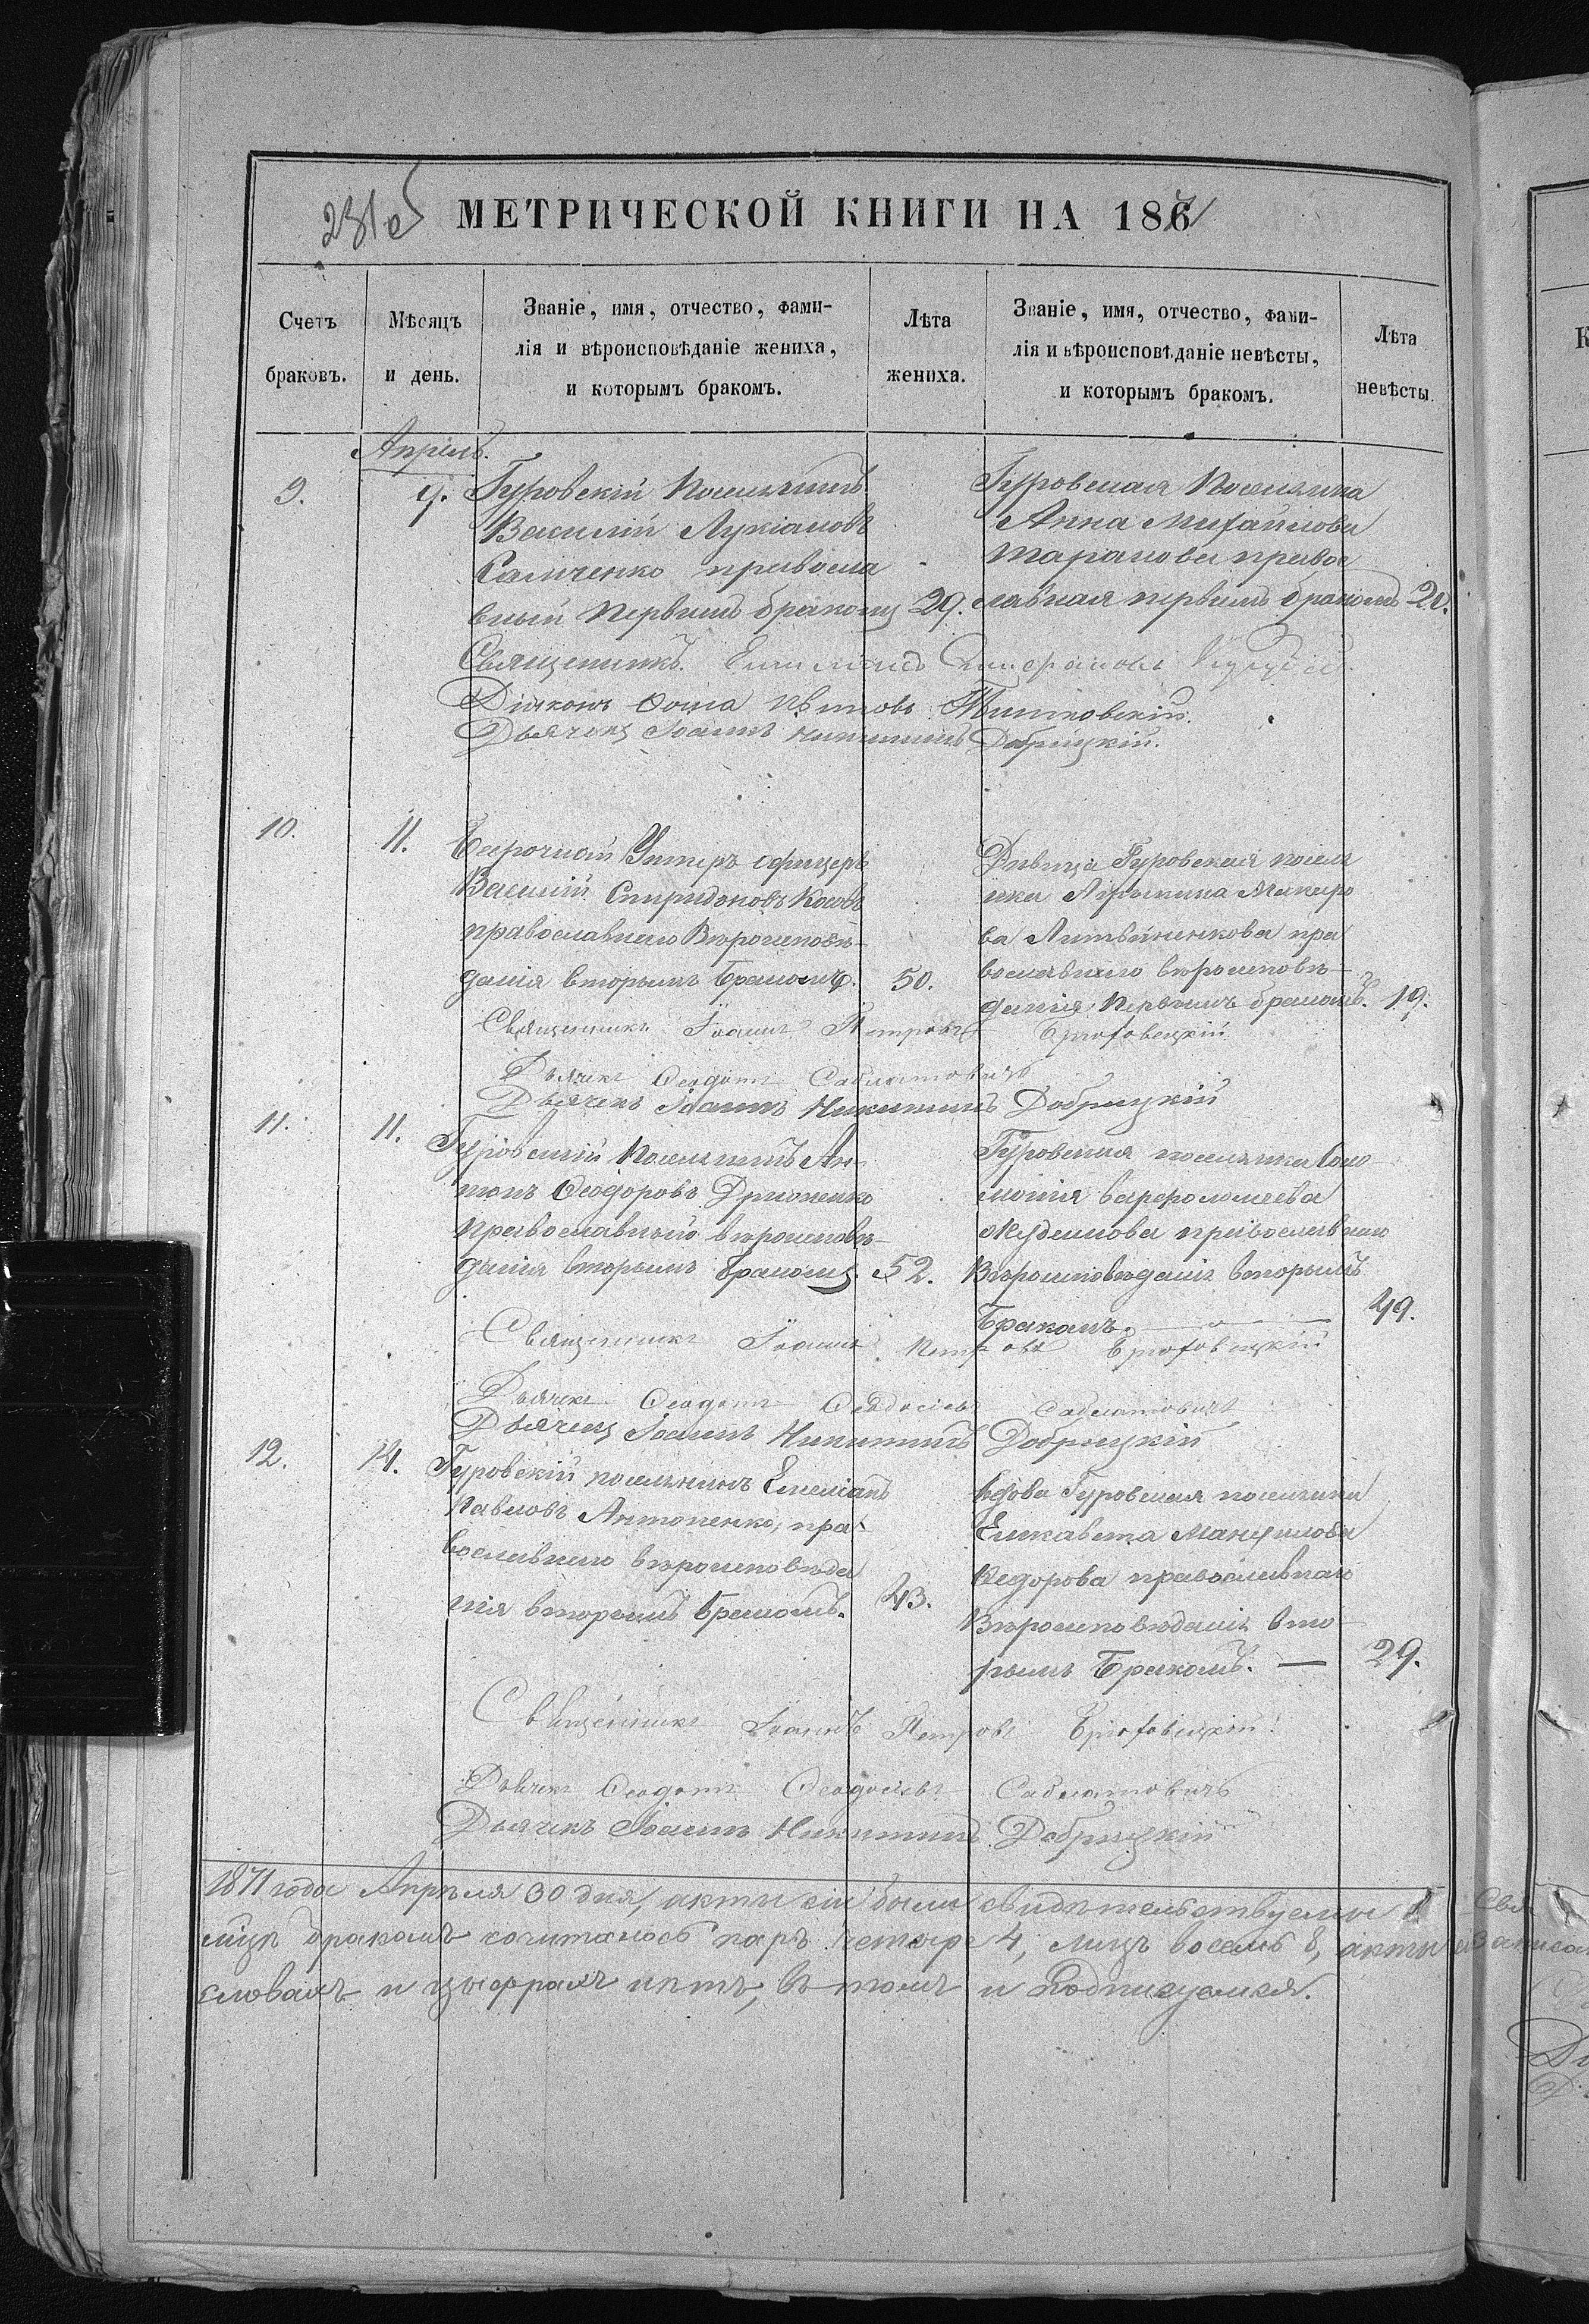 231об
МЕТРИЧЕСКОЙ КНИГИ НА 1871
Счетъ браковъ.
Мѣсяцъ и день.
Званіе, имя, отчество, фами-
лія и вѣроисповѣданіе жениха,
и которымъ бракомъ.
Лѣта жениха.
Званіе, имя, отчество, фами-
лія и вѣроисповѣданіе невѣсты,
и которымъ бракомъ.
Лѣта невѣсты.
Апрель.
9.
9.
Гуровскій Поселянинъ
Василій Лукіановъ
Саличенко правосла
вный первымъ бракомъ
29.
Гуровская Поселянка
Анна Михайлова
Таранова право
славная первымъ бракомъ
20.
Священникъ
Діяконъ Фома Ивановъ
Дьячекъ Іоаннъ Никитинъ Добрицкій.
10.
11.
Безсрочный Унтеръ офицеръ
Василій Спиридоновъ Косовъ
православнаго Вѣроисповѣ-
данія вторымъ бракомъ.
50.
Дѣвица Гуровская поселя
нка Макаро
ва Литвиненкова пра
вославнаго вѣроисповѣ-
данія, первымъ бракомъ.
19.
Священникъ Іоаннъ Петровъ Брюховецкій
Дьячекъ Ѳеодотъ Савватовичъ
Дьячекъ Іоаннъ Никитинъ Добрицкій
11.
11.
Гуровскій Поселянинъ Ан-
тонъ Ѳеодоровъ
православный вѣроисповѣ-
данія вторымъ бракомъ.
52.
Гуровская поселянка Соло
монія Варфоломеева
православнаго
Вѣроисповѣданія вторымъ
бракомъ.
49.
Священникъ Іоаннъ Петровъ Брюховецкій
Дьячекъ Ѳеодотъ Ѳеодосіевъ Савватовичъ
Дьячекъ Іоаннъ Никитинъ Добрицкій
12.
14.
Гуровскій поселянинъ Емеліанъ
Павловъ Антоненко, пра-
вославнаго вѣроисповѣда
нія вторымъ бракомъ.
43.
Вдова Гуровская поселянка
Елисавета Мануилова
Ѳедорова православнаго
Вѣроисповѣданія вто-
рымъ бракомъ. —
29.
Священникъ Іоаннъ Петровъ Брюховецкій
Дьячекъ Ѳеодотъ Ѳеодосіевъ Савватовичъ
Дьячекъ Іоаннъ Никитинъ Добрицкій
1871 года Апрѣля 30 дня, акты сіи были свидѣтельствуемы
бракомъ сочиталось паръ четыре 4, лицъ восемь 8, акты
словахъ и цыфрахъ нѣтъ, въ томъ и подписуемся.